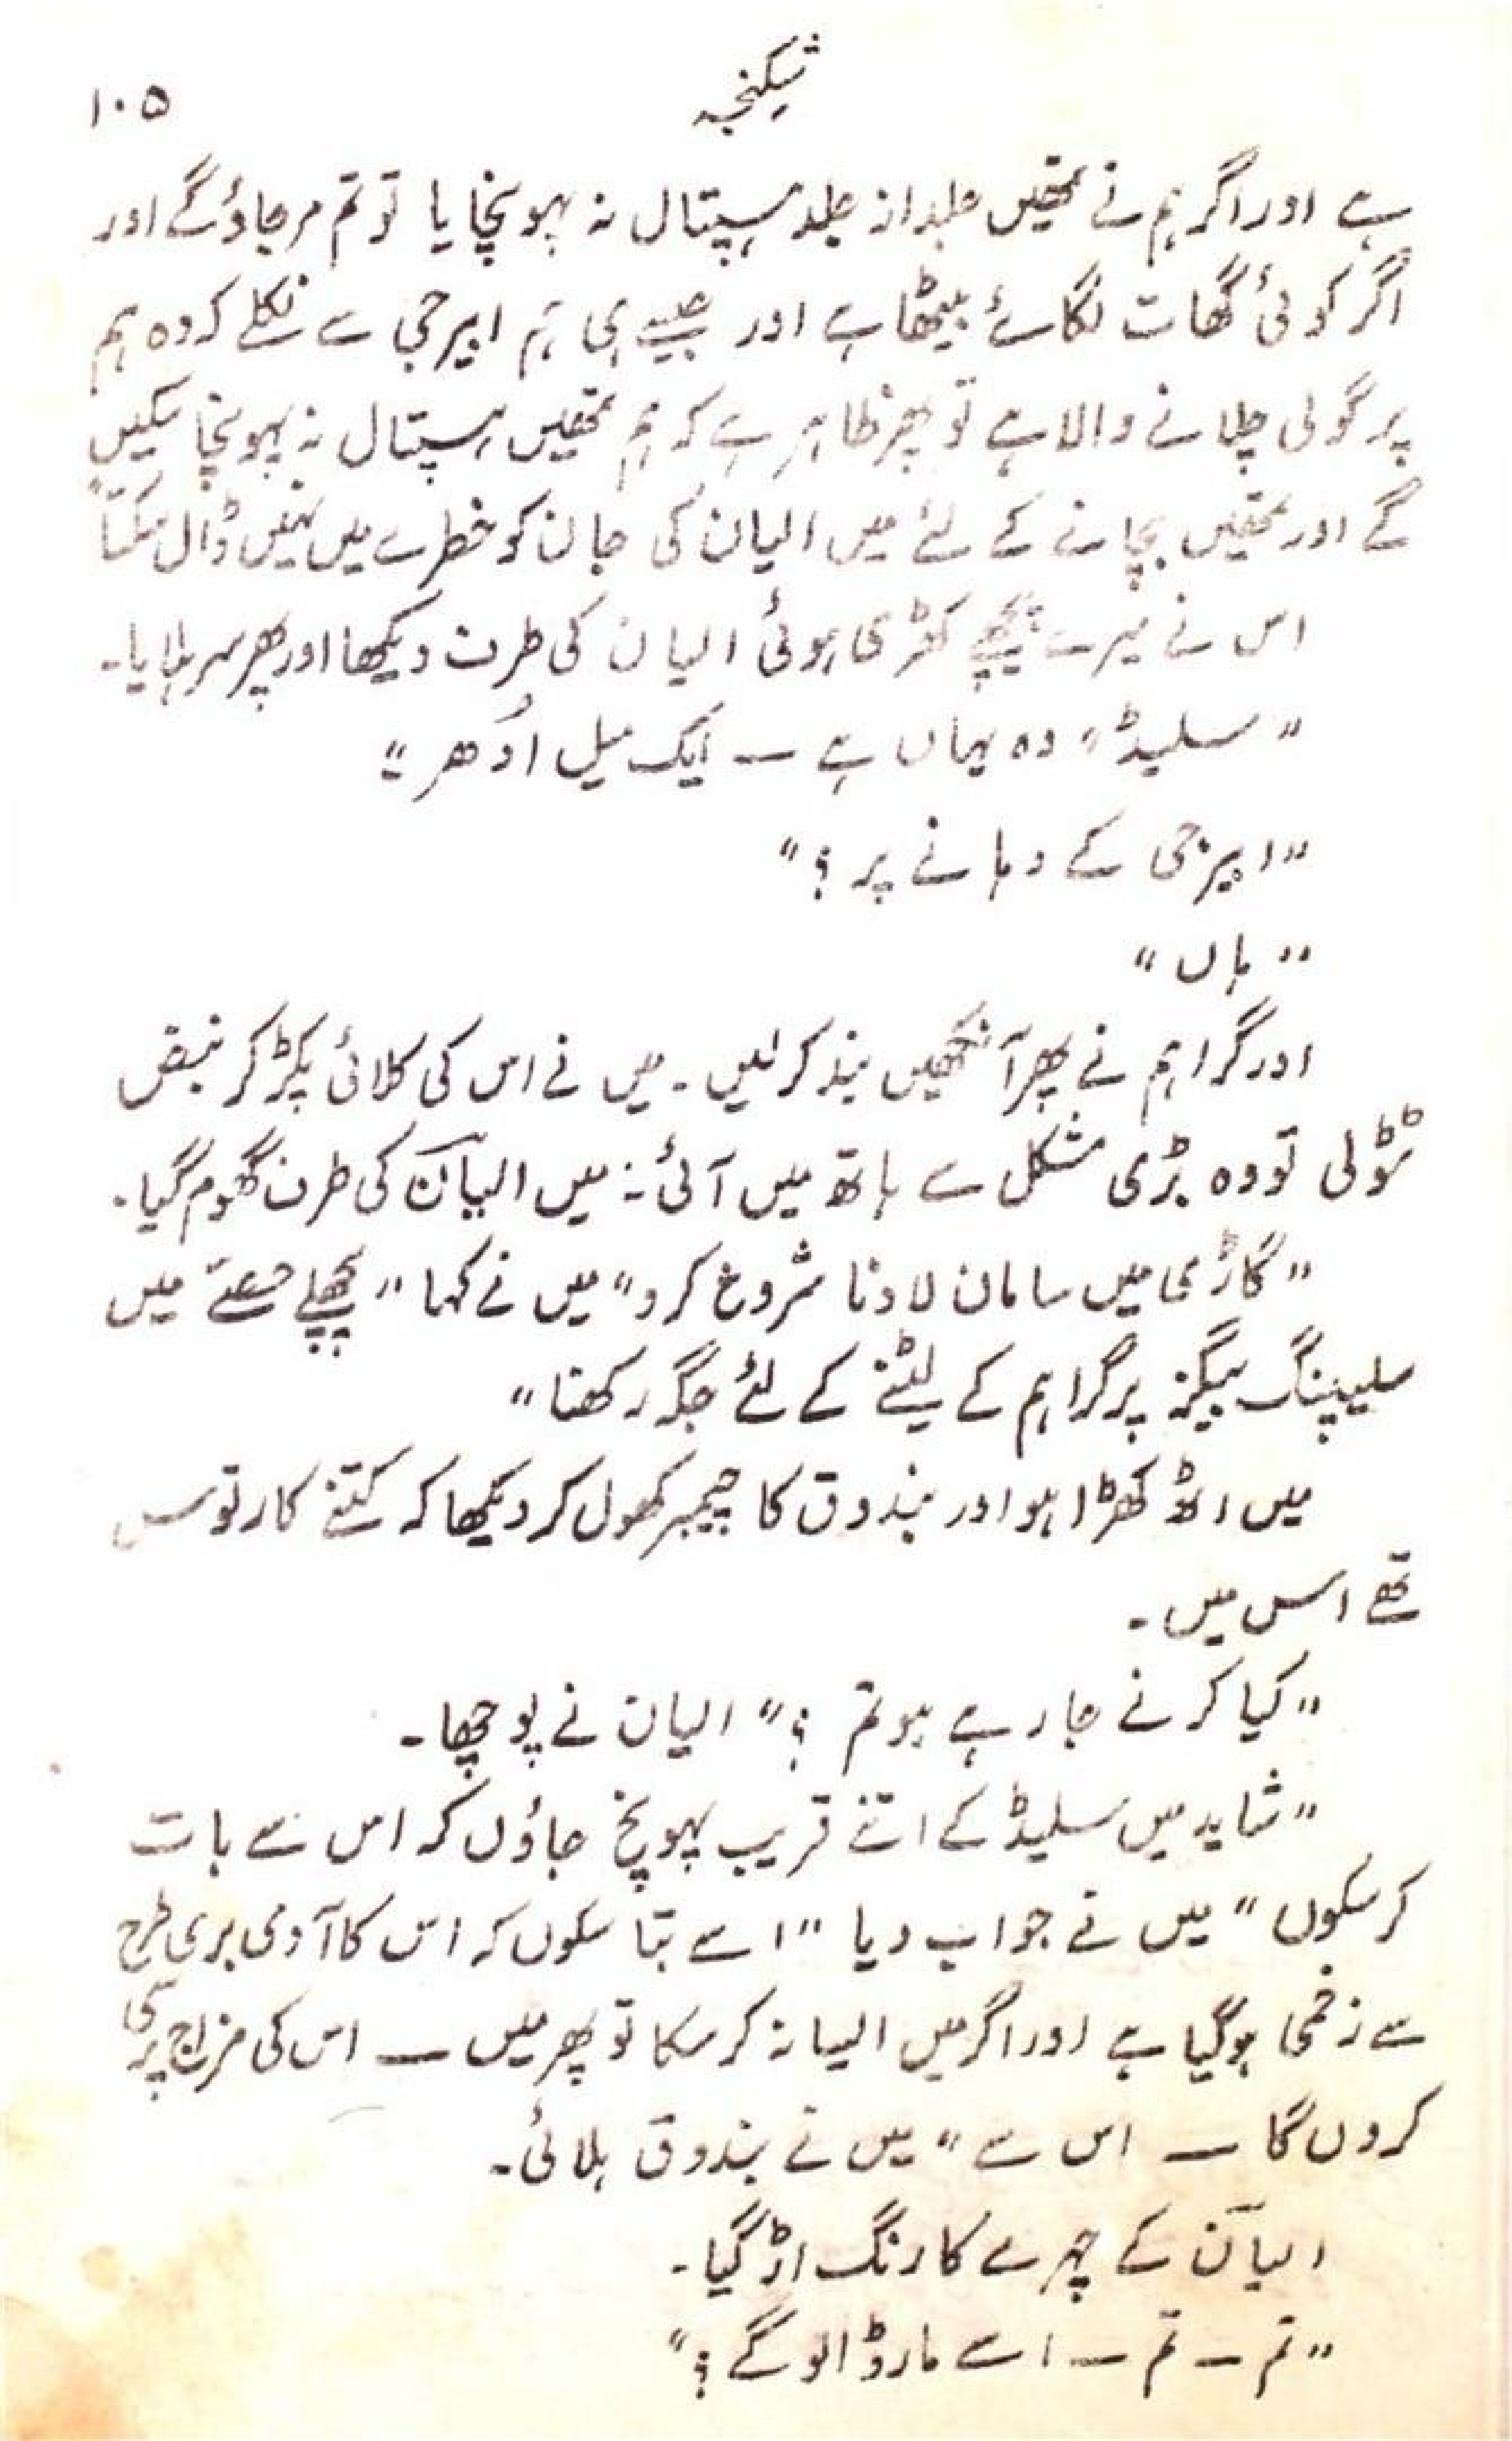 شکنجہ
۱۰۵
ہے اور اگر ہم نے تمھیں جلد از جلد ہسپتال نہ پہونچایا تو تم مرجاؤ گے اور
اگر کوئی گھات لگائے بیٹھا ہے اور جیسے ہی ہم ابیرجی سے نکلے کہ وہ ہم
پر گولی چلانے والا ہے تو پھر ظاہر ہے کہ ہم تمھیں ہسپتال نہ پہونچا سکیں
گے اور تمھیں بچانے کے لئے میں الیان کی جان کو خطرے میں نہیں ڈال سکتا"
اس نے میرے پیچھے کھڑی ہوئی الیان کی طرف دیکھا اور پھر سر ہلایا۔
"سلیڈ" وہ یہاں ہے — ایک میل اُدھر"
"ابیرجی کے دہانے پر؟"
"ہاں"
اور گراہم نے پھر آنکھیں بند کرلیں۔ میں نے اس کی کلائی پکڑ کر نبض
ٹٹولی تو وہ بڑی مشکل سے ہاتھ میں آئی۔ میں الیان کی طرف گھوم گیا۔
"گاڑی میں سامان لادنا شروع کرو" میں نے کہا "پچھلے حصے میں
سلیپنگ بیگز پر گراہم کے لیٹنے کے لئے جگہ رکھنا"
میں اٹھ کھڑا ہوا اور بندوق کا چیمبر کھول کر دیکھا کہ کتنے کارتوس
تھے اس میں۔
"کیا کرنے جارہے ہو تم؟" الیان نے پوچھا۔
"شاید میں سلیڈ کے اتنے قریب پہونچ جاؤں کہ اس سے بات
کرسکوں" میں نے جواب دیا "اسے بتا سکوں کہ اس کا آدمی بری طرح
سے زخمی ہوگیا ہے اور اگر میں ایسا نہ کرسکا تو پھر میں — اس کی مزاج پرسی
کروں گا — اس سے" میں نے بندوق ہلائی۔
الیان کے چہرے کا رنگ اڑ گیا۔
"تم — تم — اسے مار ڈالو گے؟"